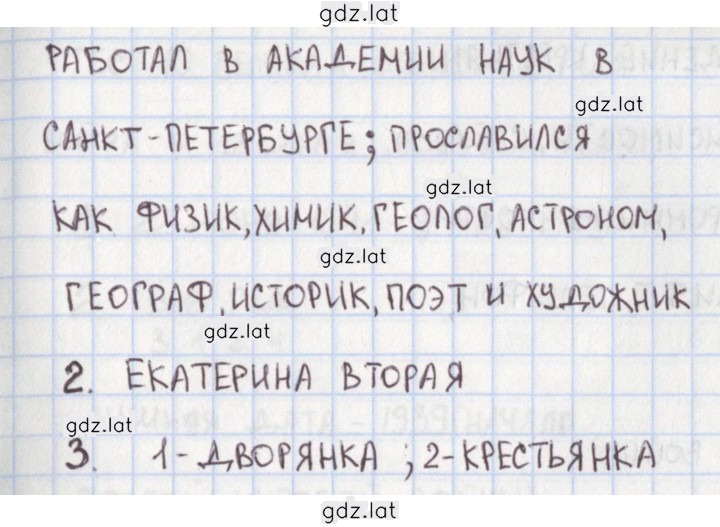 gdz.lat
РАБОТАЛ В АКАДЕМИИ НАУК В
gdz.lat
САНКТ-ПЕТЕРБУРГЕ; ПРОСЛАВИЛСЯ
gdz.lat
КАК ФИЗИК, ХИМИК, ГЕОЛОГ, АСТРОНОМ,
gdz.lat
ГЕОГРАФ, ИСТОРИК, ПОЭТ И ХУДОЖНИК
gdz.lat
2. ЕКАТЕРИНА ВТОРАЯ
gdz.lat
3. 1-ДВОРЯНКА ; 2-КРЕСТЬЯНКА
gdz.lat